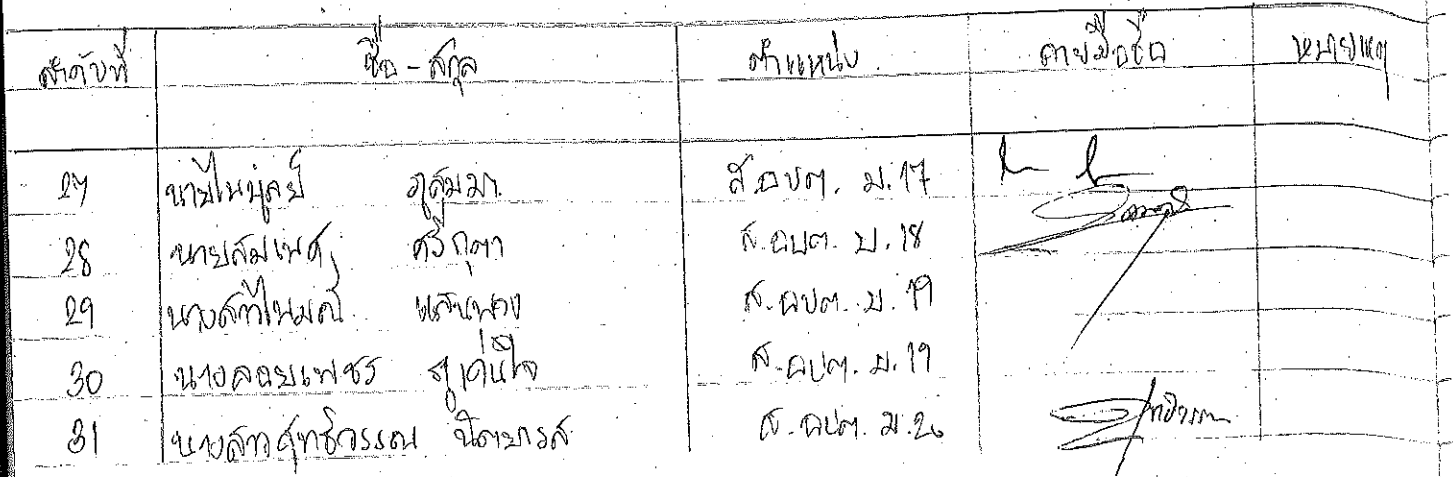 ลำดับที่ ชื่อ - สกุล ตำแหน่ง ลายมือชื่อ หมายเหตุ
27 นายไพบูลย์ ภูสมมา ส.อบต. ม.17
28 นายสมเพศ ศรีกุตา ส.อบต. ม.18
29 นางสาวไพมณี แสนพวง ส.อบต. ม.19
30 นางลอยเพชร ภูเด่นใจ ส.อบต. ม.19
31 นางสาวสุทธิวรรณ นิตยารส ส.อบต. ม.20 สุทธิวรรณ